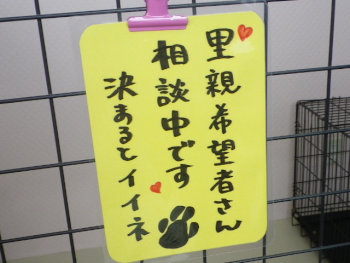 里親希望者さん
相談中です
決まるとイイネ